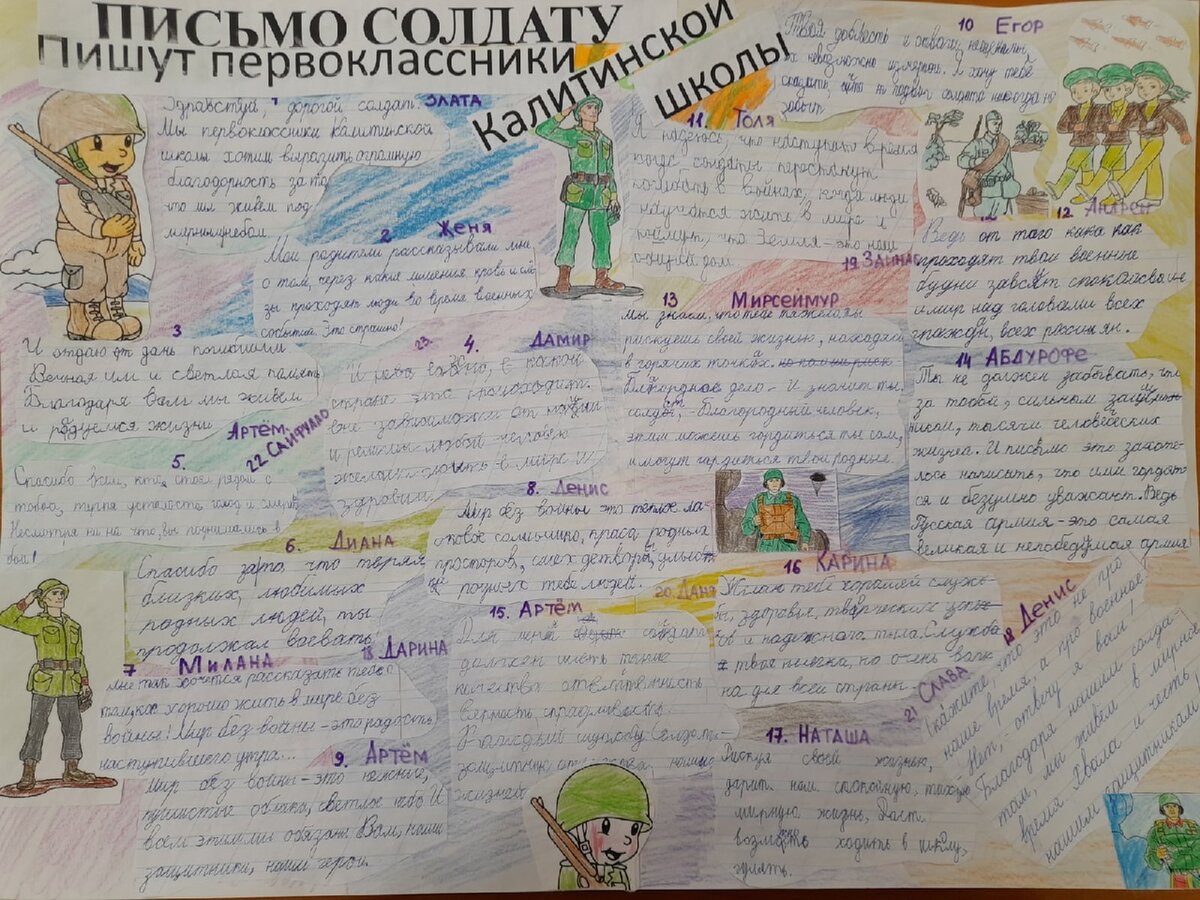 ПИСЬМО СОЛДАТУ
Пишут первоклассники
Калитинской
школы
1 ЗЛАТА
Здравствуй, дорогой солдат.
Мы первоклассники Калитинской
школы хотим выразить огромную
благодорность за то
что мы живём под
мирным небом
2 Женя
Мои родители рассказывали мне
о том, через какие лишения кровь и слё
зы проходят люди во время военных
событий. Это страшно!
3
И отдают дань погибшим
Вечная им и светлая память
Благодаря Вам мы живём
и радуемся жизни
Артём
23 4. ДАМИР
И ведь важно, в какой
стране это происходит.
вне зависимости от нации
и религии любой человек
желает жить в мире и
здравии.
22 САЙФУЛЛО
5.
Спасибо всем, кто стоял рядом с
тобою, терпя усталость голод и
Несмотря ни на что, вы поднимались в
бой!
6. ДИАНА
Спасибо за то, что теряя
близких, любимых
родных людей, ты
продолжал воевать
7 МИЛАНА
18 ДАРИНА
Мне так хочется рассказать тебе о
том, как хорошо жить в мире без
войны! Мир без войны - это радость
наступившего утра...
8. Денис
Мир без войны это тёплое ла
сковое солнышко, краса родных
просторов, смех детворы,
родных тебе людей.
9. АРТЁМ
Мир без войны - это нежный,
пушистые облака, светлое небо. И
всем этим мы обязаны Вам, наши
защитники, наши герои.
10 ЕГОР
Твоя доблесть и отвага
их невозможно измерить. Я хочу тебе
сказать, что подвиг солдата никогда не
забыт
11 ТОЛЯ
Я надеюсь, что наступит время
когда солдаты перестанут
погибать в войнах, когда люди
научатся жить в мире и
поймут, что Земля - это наш
общий дом.
12. АНДРЕЙ
19
Ведь от того как
проходят твои военные
будни зависит спокойствие
и мир над головами всех
граждан, всех россиян.
13 МИРСЕЙМУР
Мы знаем, что тебе тяжело ты
рискуешь своей жизнью, находясь
в горячих точках.
Благородное дело - И значит ты
солдат, - благородный человек,
этим можешь гордиться ты сам,
и могут гордиться твои родные.
14 АБДУРОФЕ
Ты не должен забывать, что
за тобой, сильном защитником,
тысячи человеческих
жизней. И письмо это захоте-
лось написать, что ими гордят
ся и безумно уважают. Ведь
Русская армия - это самая
великая и непобедимая армия
15. АРТЁМ
Для меня солдат
должен иметь такие
качества ответственность
верность
жизней
16 КАРИНА
20. ДАНЯ
Желаю тебе хорошей служ-
бы, здоровья,
и надёжного тыла. Служба
твоя нелегка, но очень
на для всей страны.
17. НАТАША
Рискуя своей жизнью,
дарит нам спокойную, тихую
мирную жизнь. Даёт
возможность ходить в школу,
гулять.
18 ДЕНИС
21 СЛАВА
Скажите, это не про
наше время, а про военное!
- Нет, - отвечу я вам!
Благодаря нашим солда
там, мы живём в мирное
время. Хвала и честь,
нашим защитникам